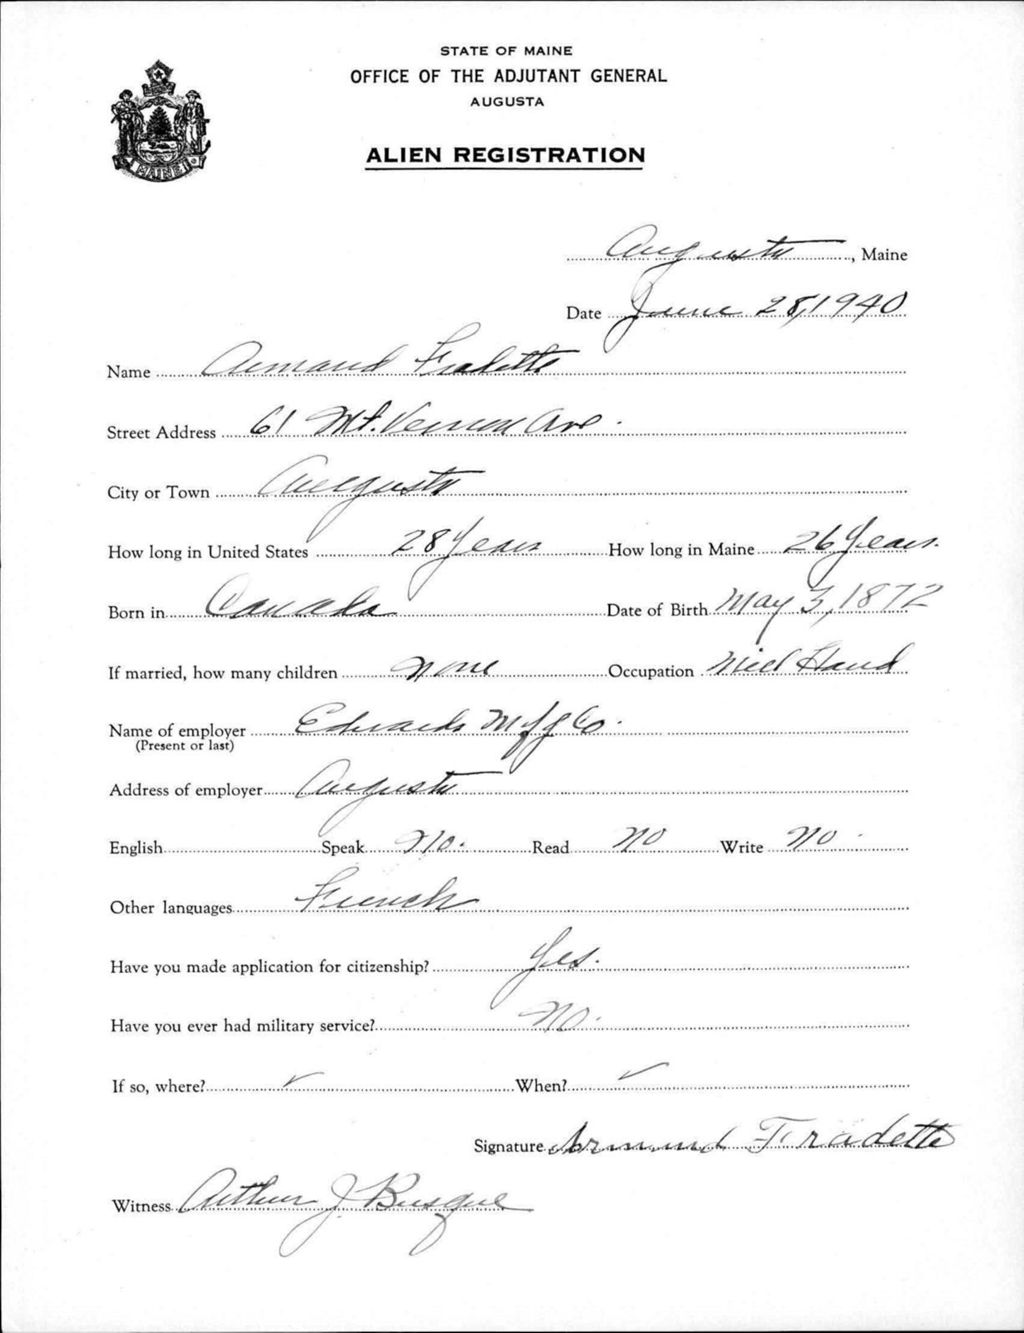 STATE OF MAINE
OFFICE OF THE ADJUTANT GENERAL
AUGUSTA
ALIEN REGISTRATION
MAINE
Augusta, Maine
Date June 28, 1940
Name Armand Fradette
Street Address 61 Mt. Vernon Ave.
City or Town Augusta
How long in United States 28 Years How long in Maine 26 Years.
Born in Canada Date of Birth May 3, 1872
If married, how many children None Occupation Mill Hand
Name of employer Edwards Mfg Co.
(Present or last)
Address of employer Augusta
English Speak No. Read No Write No.
Other languages French
Have you made application for citizenship? Yes.
Have you ever had military service? No.
If so, where? ✓ When? ✓
Signature Armand Fradette
Witness Arthur J. Busque